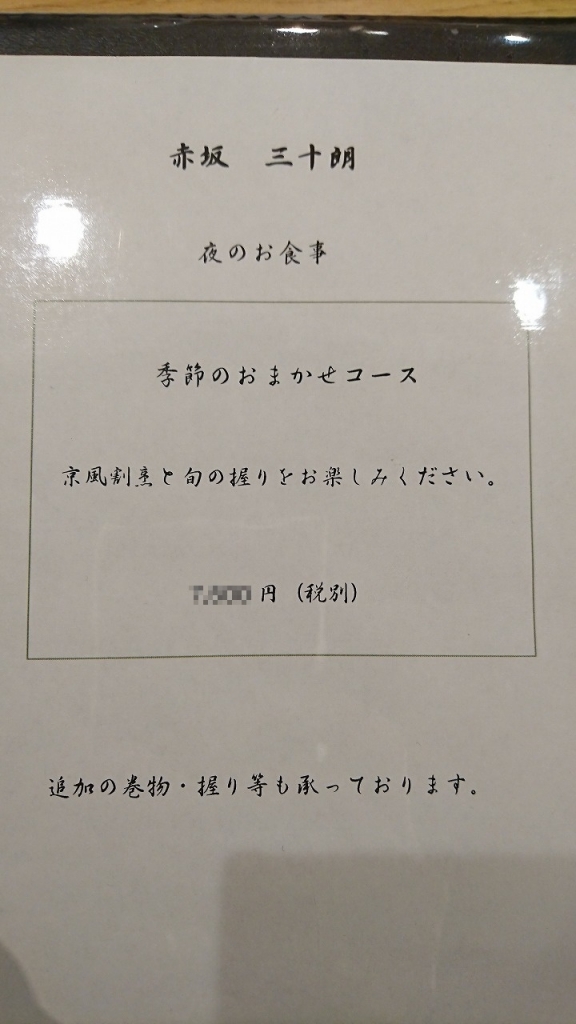 赤坂　三十朗
夜のお食事
季節のおまかせコース
京風割烹と旬の握りをお楽しみください。
円（税別）
追加の巻物・握り等も承っております。